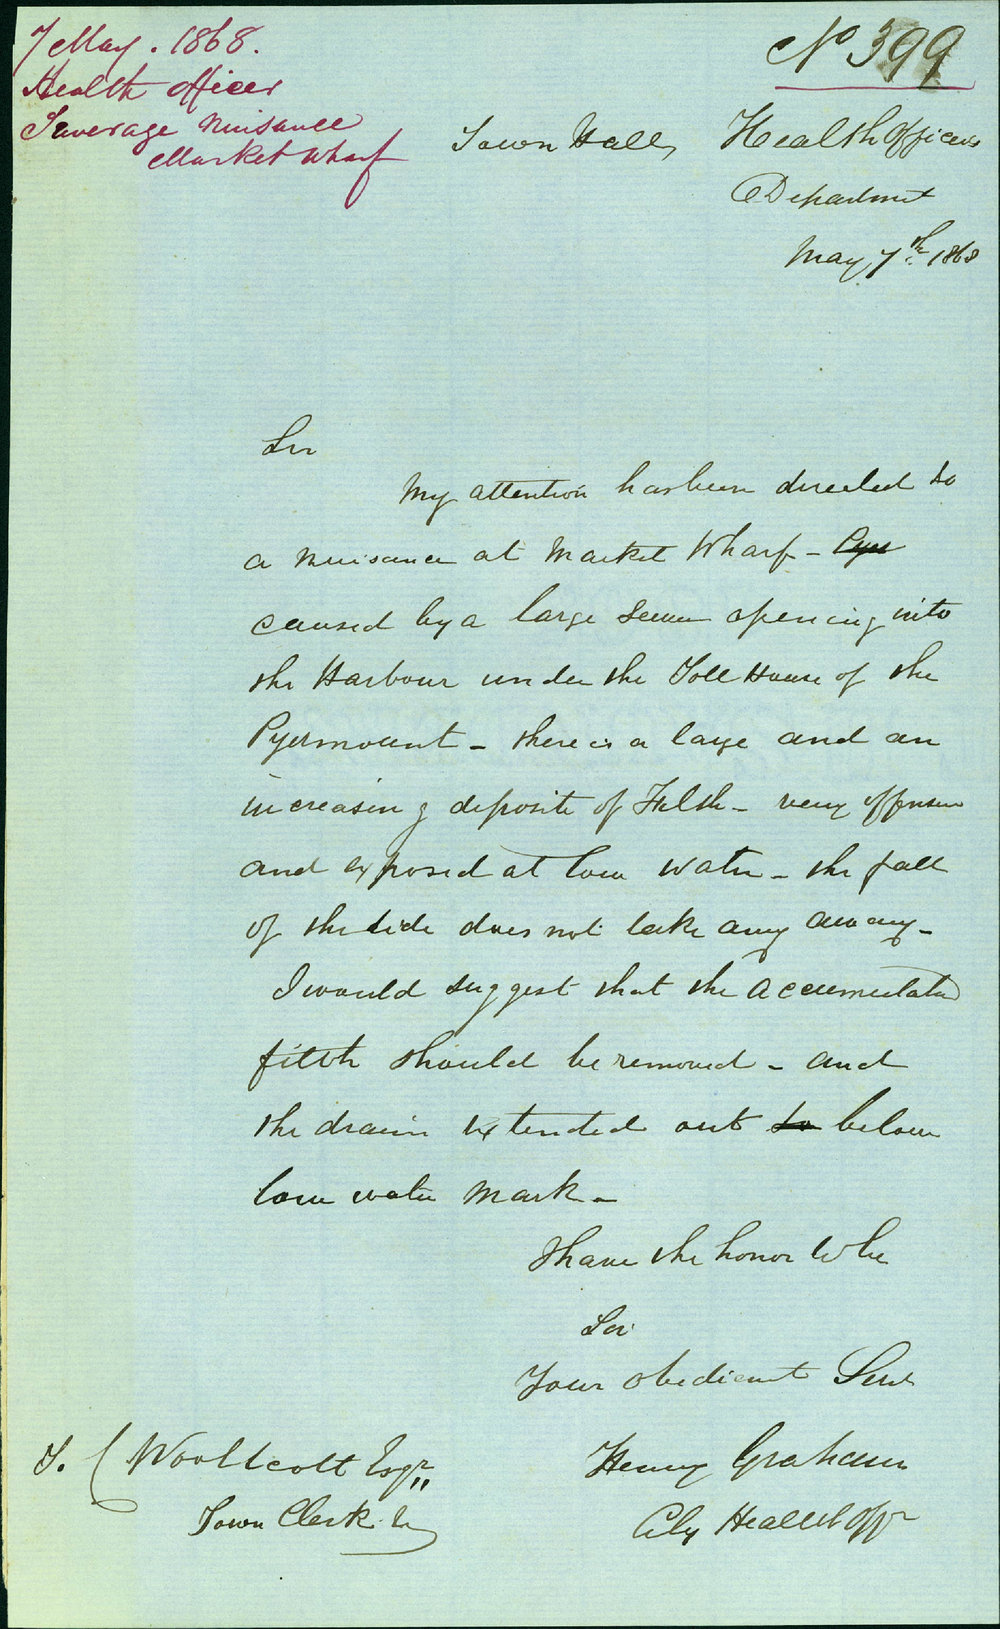 7 May. 1868.
Health officer
Sewerage Nuisance
Market Wharf
No 399
Town Hall, Health Officers
Department
May 7th 1868
Sir
My attention has been directed to
a nuisance at Market Wharf - Pye
caused by a large Sewer opening into
the Harbour under the Toll House of the
Pyermount - there is a large and an
increasing deposite of Filth - very offensive
and exposed at low water - the fall
of the tide does not take any away -
I would suggest that the accumulated
filth should be removed - and
the drain extended out to below
low water mark -
I have the honor to be
Sir
Your obedient Servt
Henry Graham
City Health Offr
Woollcott Esqr
Town Clerk